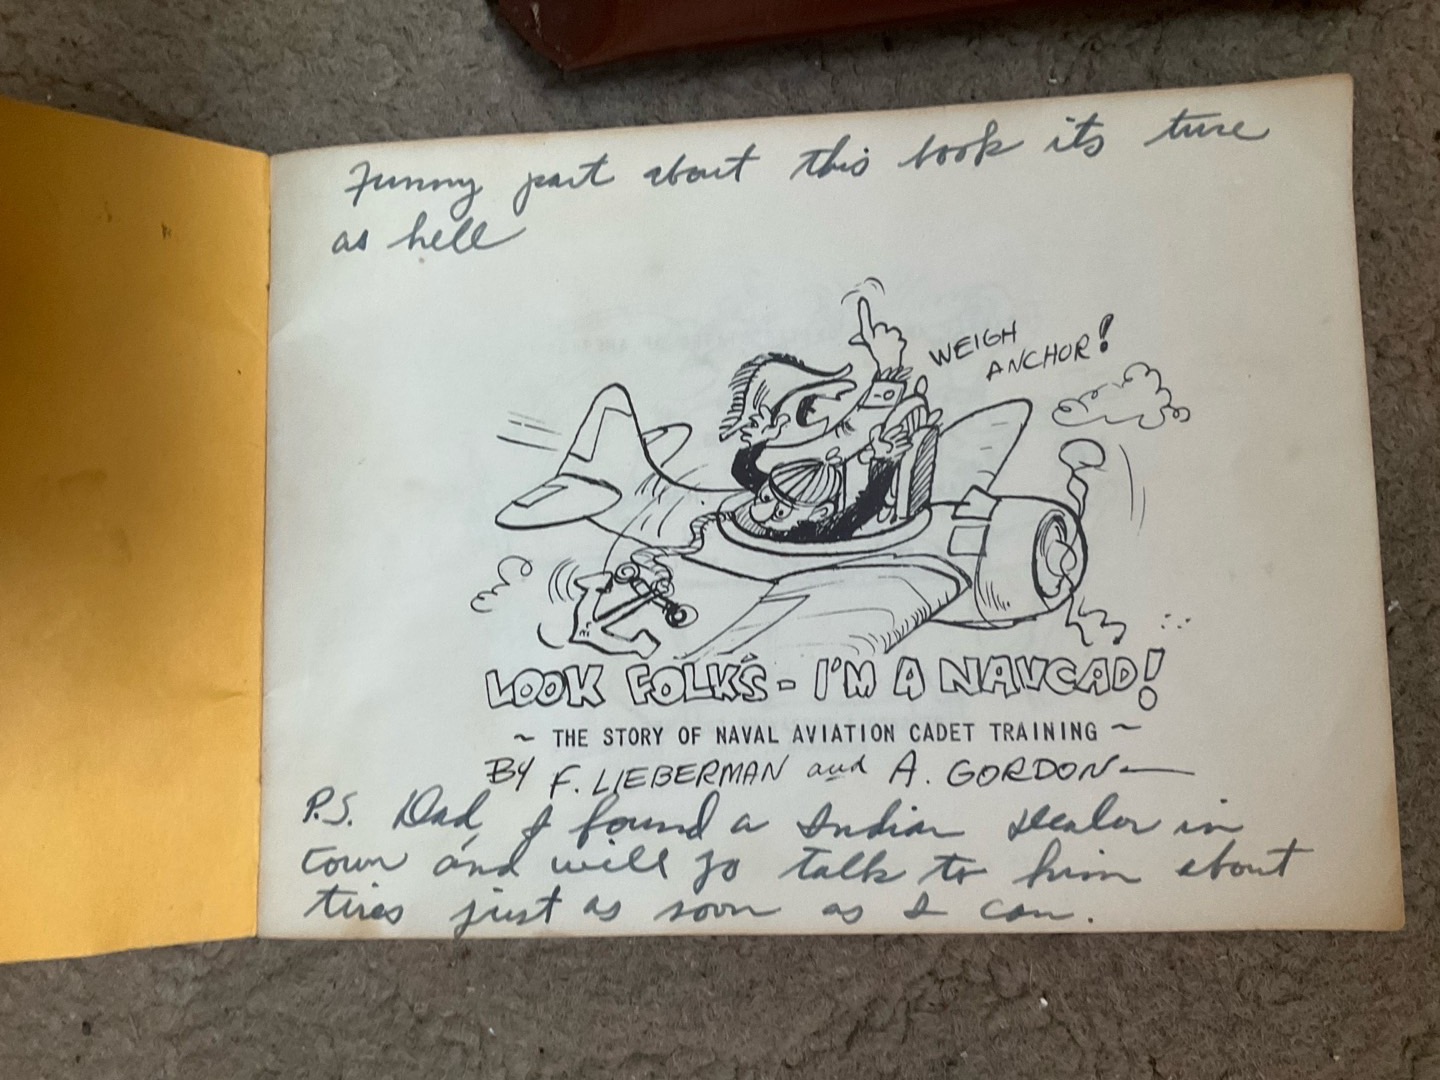 Funny part about this book its ture
as hell
WEIGH
ANCHOR!
LOOK FOLK'S - I'M A NAVCAD!
~ THE STORY OF NAVAL AVIATION CADET TRAINING ~
BY F. LIEBERMAN and A. GORDON
P.S. Dad, I found a Indian dealer in
town and will go talk to him about
tires just as soon as I can.